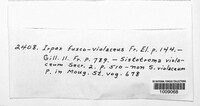 2408. Irpex fusco-violaceus Fr. El. p. 144. —
Gill. II. Fr. p. 789. — Sistotrema viola-
ceum Secr. 2. p. 510 - non S. violaceum
P. in Moug. St. vog. 678
1009068